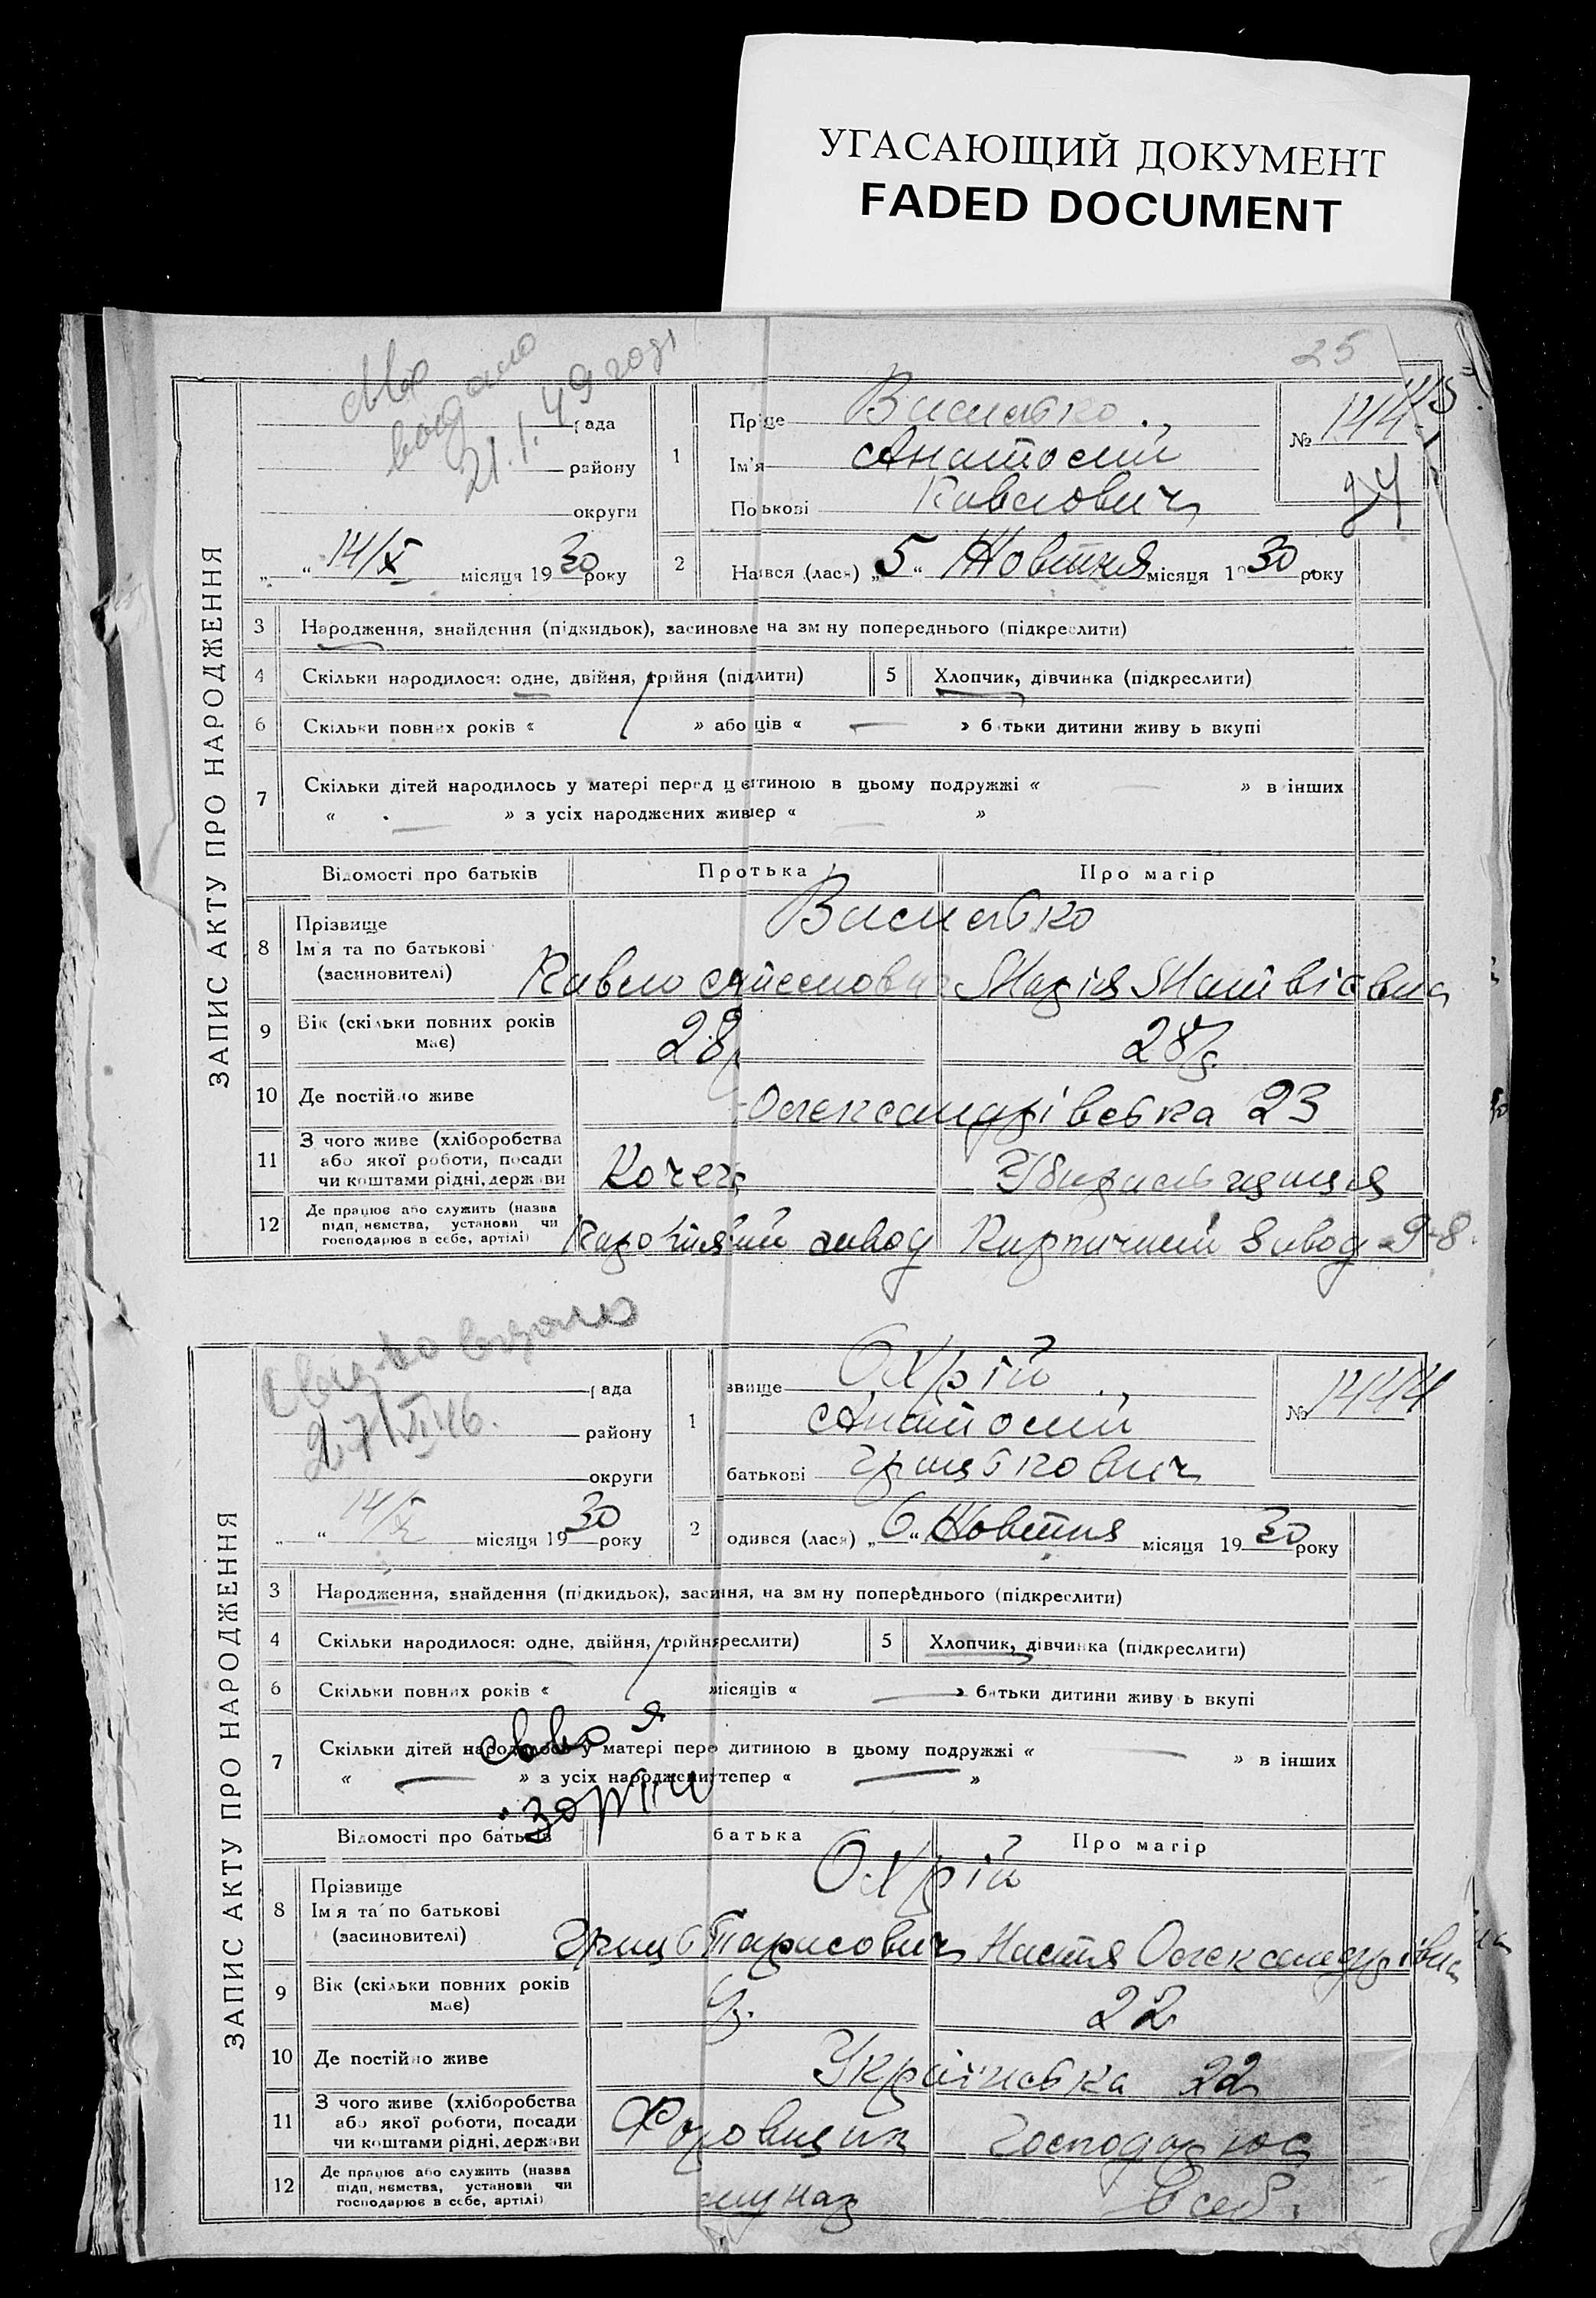 УГАСАЮЩИЙ ДОКУМЕНТ
FADED DOCUMENT
25
21.1.49 году
ЗАПИС АКТУ ПРО НАРОДЖЕННЯ
рада
району
округи
„ “ 14/X місяця 1930 року
1
Пр ще
Ім'я Анатолий
По ькові Павлович
№ 1443
24
2
На вся (лася) „5“ Жовтня місяця 1930 року
3 Народження, знайдення (підкидьок), засиновле на зм ну попереднього (підкреслити)
4 Скільки народилося: одне, двійня, трійня (під лити)
5 Хлопчик, дівчинка (підкреслити)
6 Скільки повних років « » або ців « — » б тьки дитини живу ь вкупі
7 Скільки дітей народилось у матері перед ц итиною в цьому подружжі « — » в інших
« — » з усіх народжених жив ер « — »
Відомості про батьків
Про тька
Про матір
8 Прізвище
Ім'я та по батькові
(засиновителі)
Павло
Марія Матвієвна
9 Вік (скільки повних років
має)
28
28 р.
10 Де постійно живе
Олександрівська 23
11 З чого живе (хліборобства
або якої роботи, посади
чи коштами рідні, держави
Кочег
12 Де працює або служить (назва
підприємства, установи чи
господарює в себе, артілі)
завод
Кирпичний завод 9-8.
Свид-во видано
27/XI 46.
ЗАПИС АКТУ ПРО НАРОДЖЕННЯ
рада
району
округи
„ “ 14/X місяця 1930 року
1
звище Охрій
Анатолий
батькові Грицькович
№ 1444
2
одився (лася) „6“ Жовтня місяця 1930 року
3 Народження, знайдення (підкидьок), заси ня, на зм ну попереднього (підкреслити)
4 Скільки народилося: одне, двійня, трійня реслити)
5 Хлопчик, дівчинка (підкреслити)
6 Скільки повних років « місяців « — » батьки дитини живу ь вкупі
7 Скільки дітей народилось у матері пере дитиною в цьому подружжі « — » в інших
« — » з усіх народжени тепер « — »
Відомості про батьків
батька
Про матір
8 Прізвище
Ім'я та по батькові
(засиновителі)
Охрій
Гриць Тарасович
Настя Олександрівна
9 Вік (скільки повних років
має)
22
10 Де постійно живе
Українська 22
11 З чого живе (хліборобства
або якої роботи, посади
чи коштами рідні, держави
Господарює
12 Де працює або служить (назва
підприємства, установи чи
господарює в себе, артілі)
в себ.